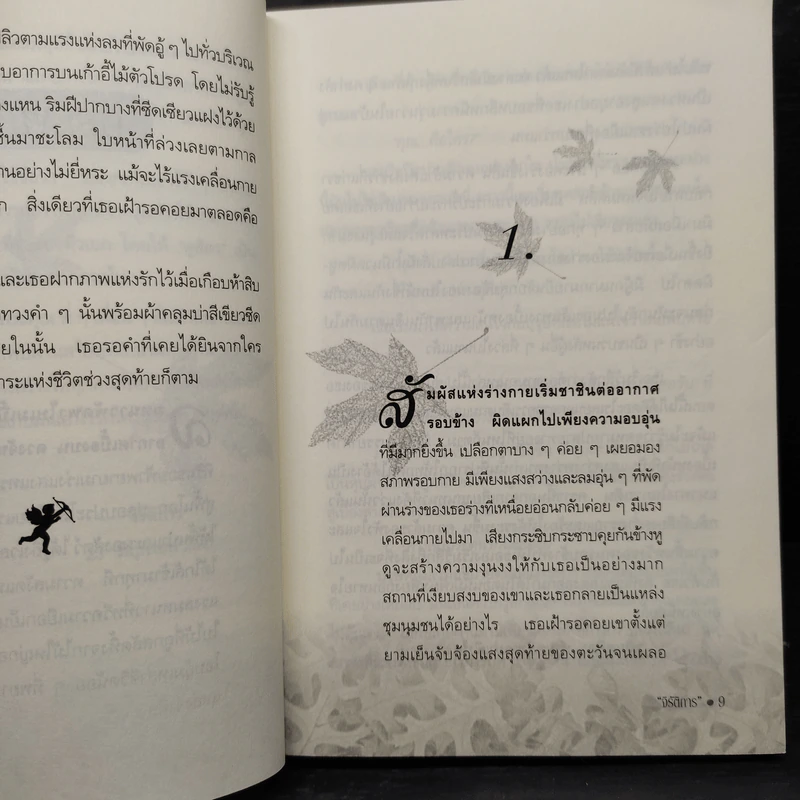 ลิวตามแรงแห่งลมที่พัดอู้ ๆ ไปทั่วบริเวณ
บอาการบนเก้าอี้ไม้ตัวโปรด โดยไม่รับรู้
งแหน ริมฝีปากบางที่ซีดเซียวแฝงไว้ด้วย
ชื้นมาชะโลม ใบหน้าที่ล่วงเลยตามกาล
านอย่างไม่ยี่หระ แม้จะไร้แรงเคลื่อนกาย
ก สิ่งเดียวที่เธอเฝ้ารอคอยมาตลอดคือ
และเธอฝากภาพแห่งรักไว้เมื่อเกือบห้าสิบ
ทวงคำ ๆ นั้นพร้อมผ้าคลุมบ่าสีเขียวซีด
ยในนั้น เธอรอคำที่เคยได้ยินจากใคร
าระแห่งชีวิตช่วงสุดท้ายก็ตาม
1.
สัมผัสแห่งร่างกายเริ่มชาชินต่ออากาศ
รอบข้าง ผิดแผกไปเพียงความอบอุ่น
ที่มีมากยิ่งขึ้น เปลือกตาบาง ๆ ค่อย ๆ เผยอมอง
สภาพรอบกาย มีเพียงแสงสว่างและลมอุ่น ๆ ที่พัด
ผ่านร่างของเธอร่างที่เหนื่อยอ่อนกลับค่อย ๆ มีแรง
เคลื่อนกายไปมา เสียงกระซิบกระซาบคุยกันข้างหู
ดูจะสร้างความงุนงงให้กับเธอเป็นอย่างมาก
สถานที่เงียบสงบของเขาและเธอกลายเป็นแหล่ง
ชุมนุมชนได้อย่างไร เธอเฝ้ารอคอยเขาตั้งแต่
ยามเย็นจับจ้องแสงสุดท้ายของตะวันจนเผลอ
"จิรัติการ" • 9